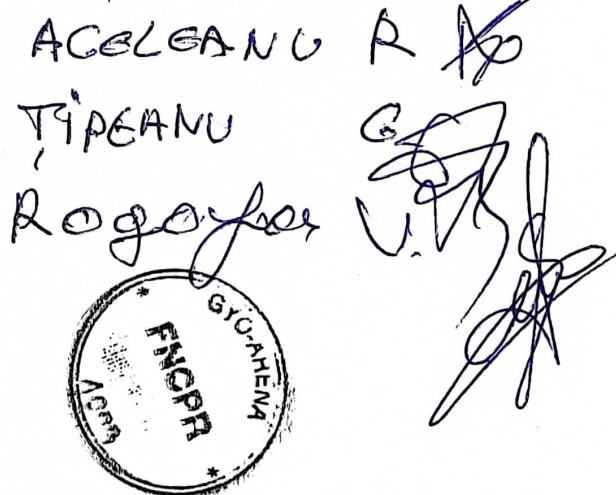 ACELEANU R
ȚIPEANU G
V.
GYO-AHENA
FNCPR
ACPR